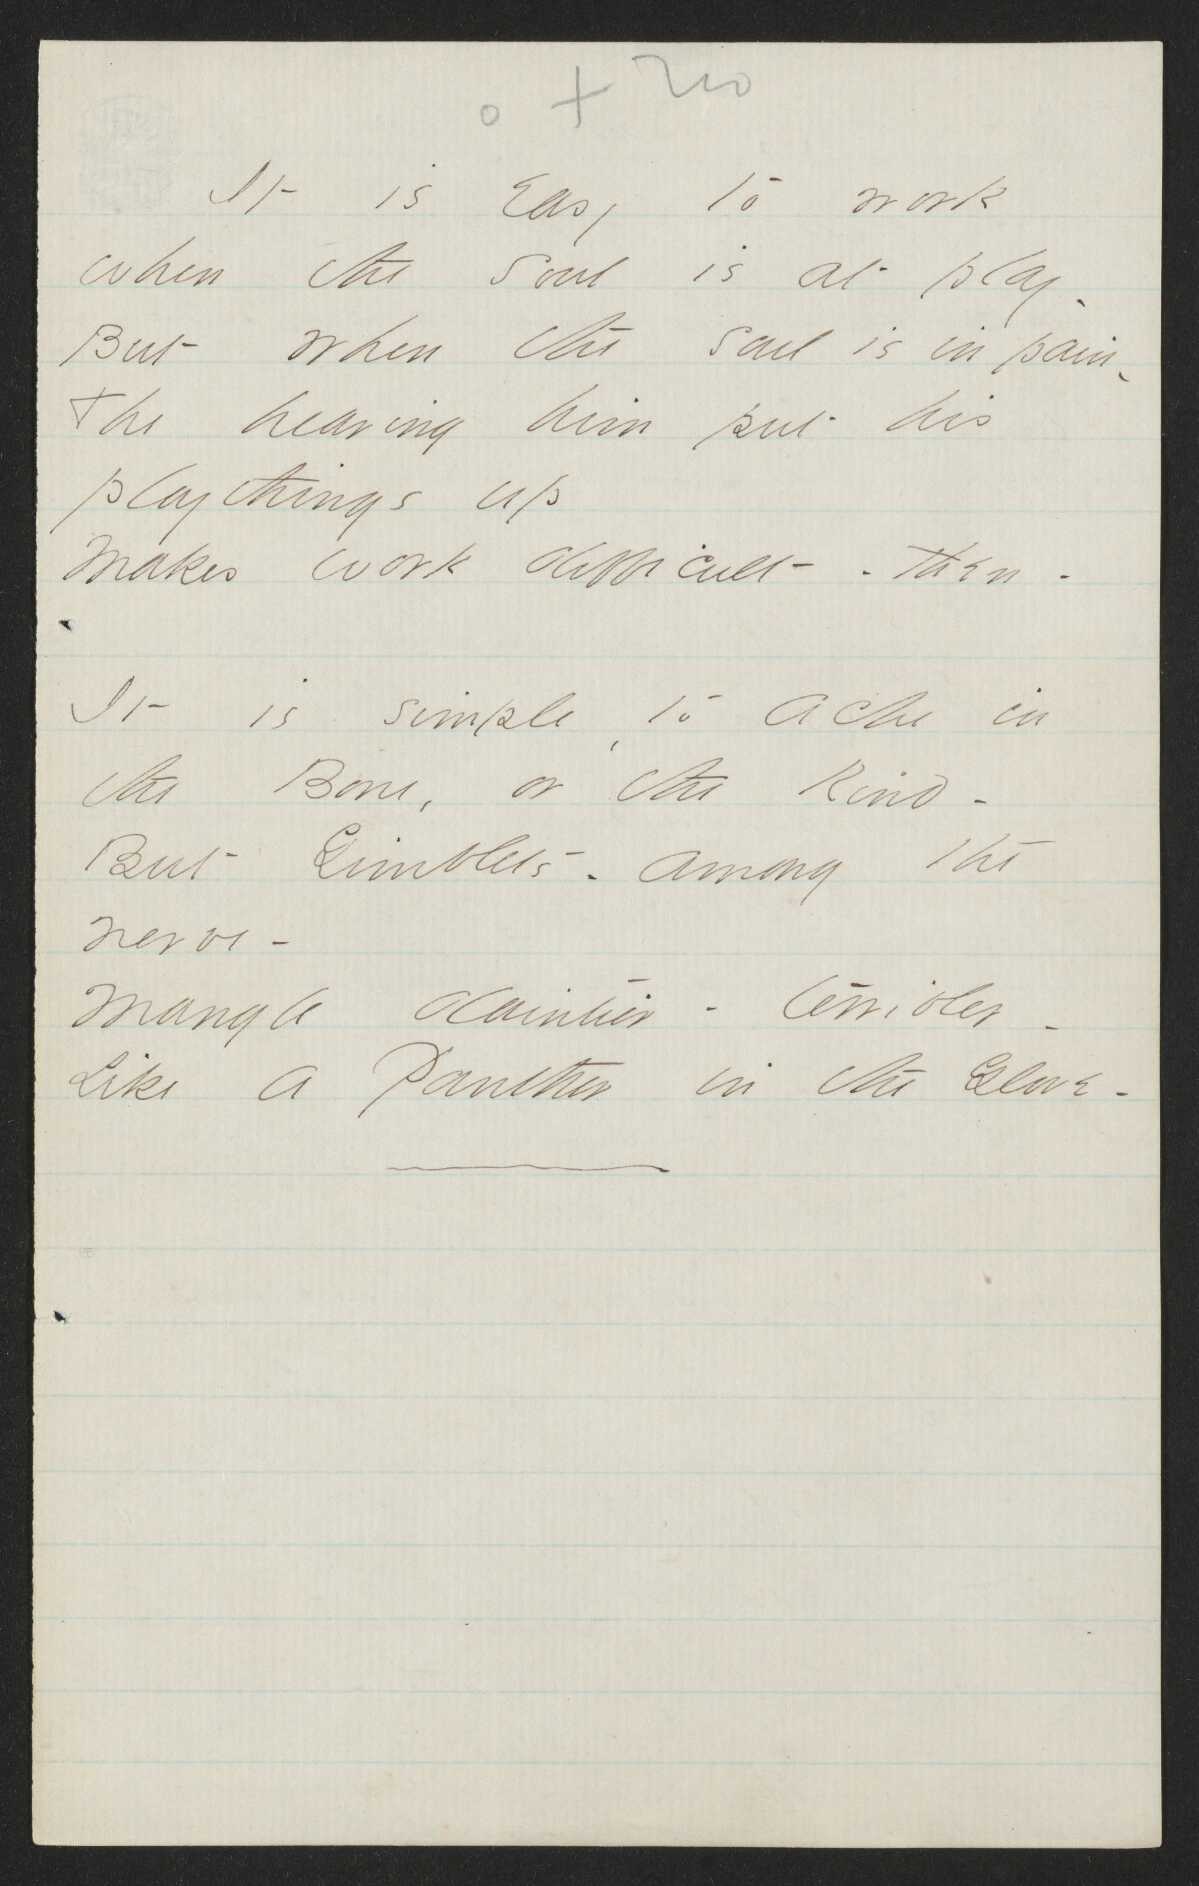 It is Easy to work
when the soul is at play -
But when the soul is in pain -
The hearing him put his
playthings up
Makes work difficult - then -
It is simple, to ache in
the Bone, or the Rind -
But Gimblets - among the
nerve -
Mangle daintier - terribler -
Like a Panther in the Glove -